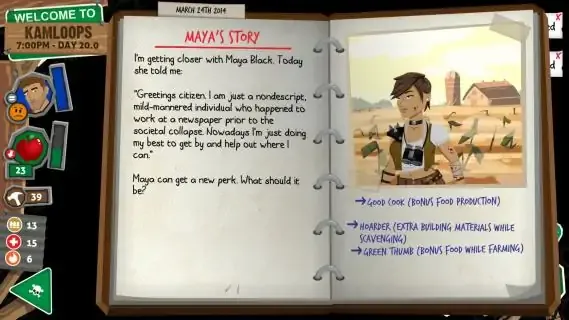 WELCOME TO
KAMLOOPS
7:00PM - DAY 20.0
23
39
13
15
6
MARCH 24TH 2014
MAYA'S STORY
I'm getting closer with Maya Black. Today
she told me:
"Greetings citizen. I am just a nondescript,
mild-mannered individual who happened to
work at a newspaper prior to the
societal collapse. Nowadays I'm just doing
my best to get by and help out where I
can."
Maya can get a new perk. What should it
be?
GOOD COOK (BONUS FOOD PRODUCTION)
HOARDER (EXTRA BUILDING MATERIALS WHILE
SCAVENGING)
GREEN THUMB (BONUS FOOD WHILE FARMING)